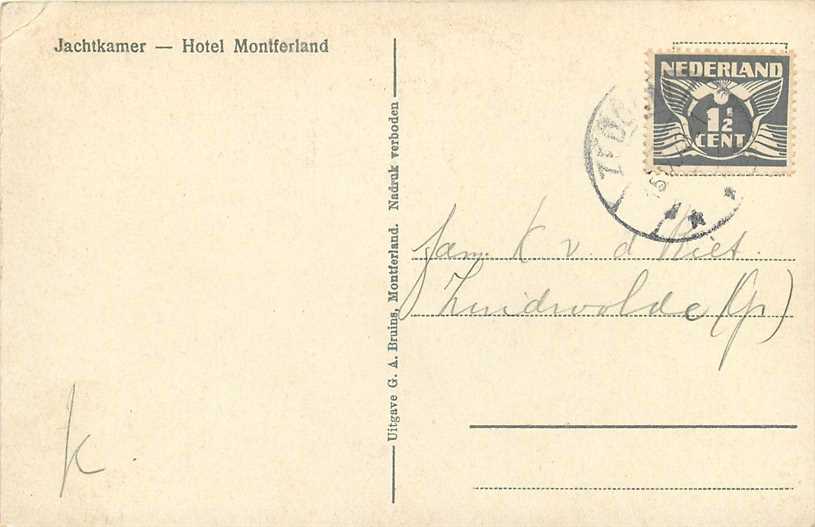 Jachtkamer — Hotel Montferland
Uitgave G. A. Bruins, Montferland. Nadruk verboden
NEDERLAND
1½
CENT
Fam. K v. d Riet.
Zuidwolde (Gr)
K.